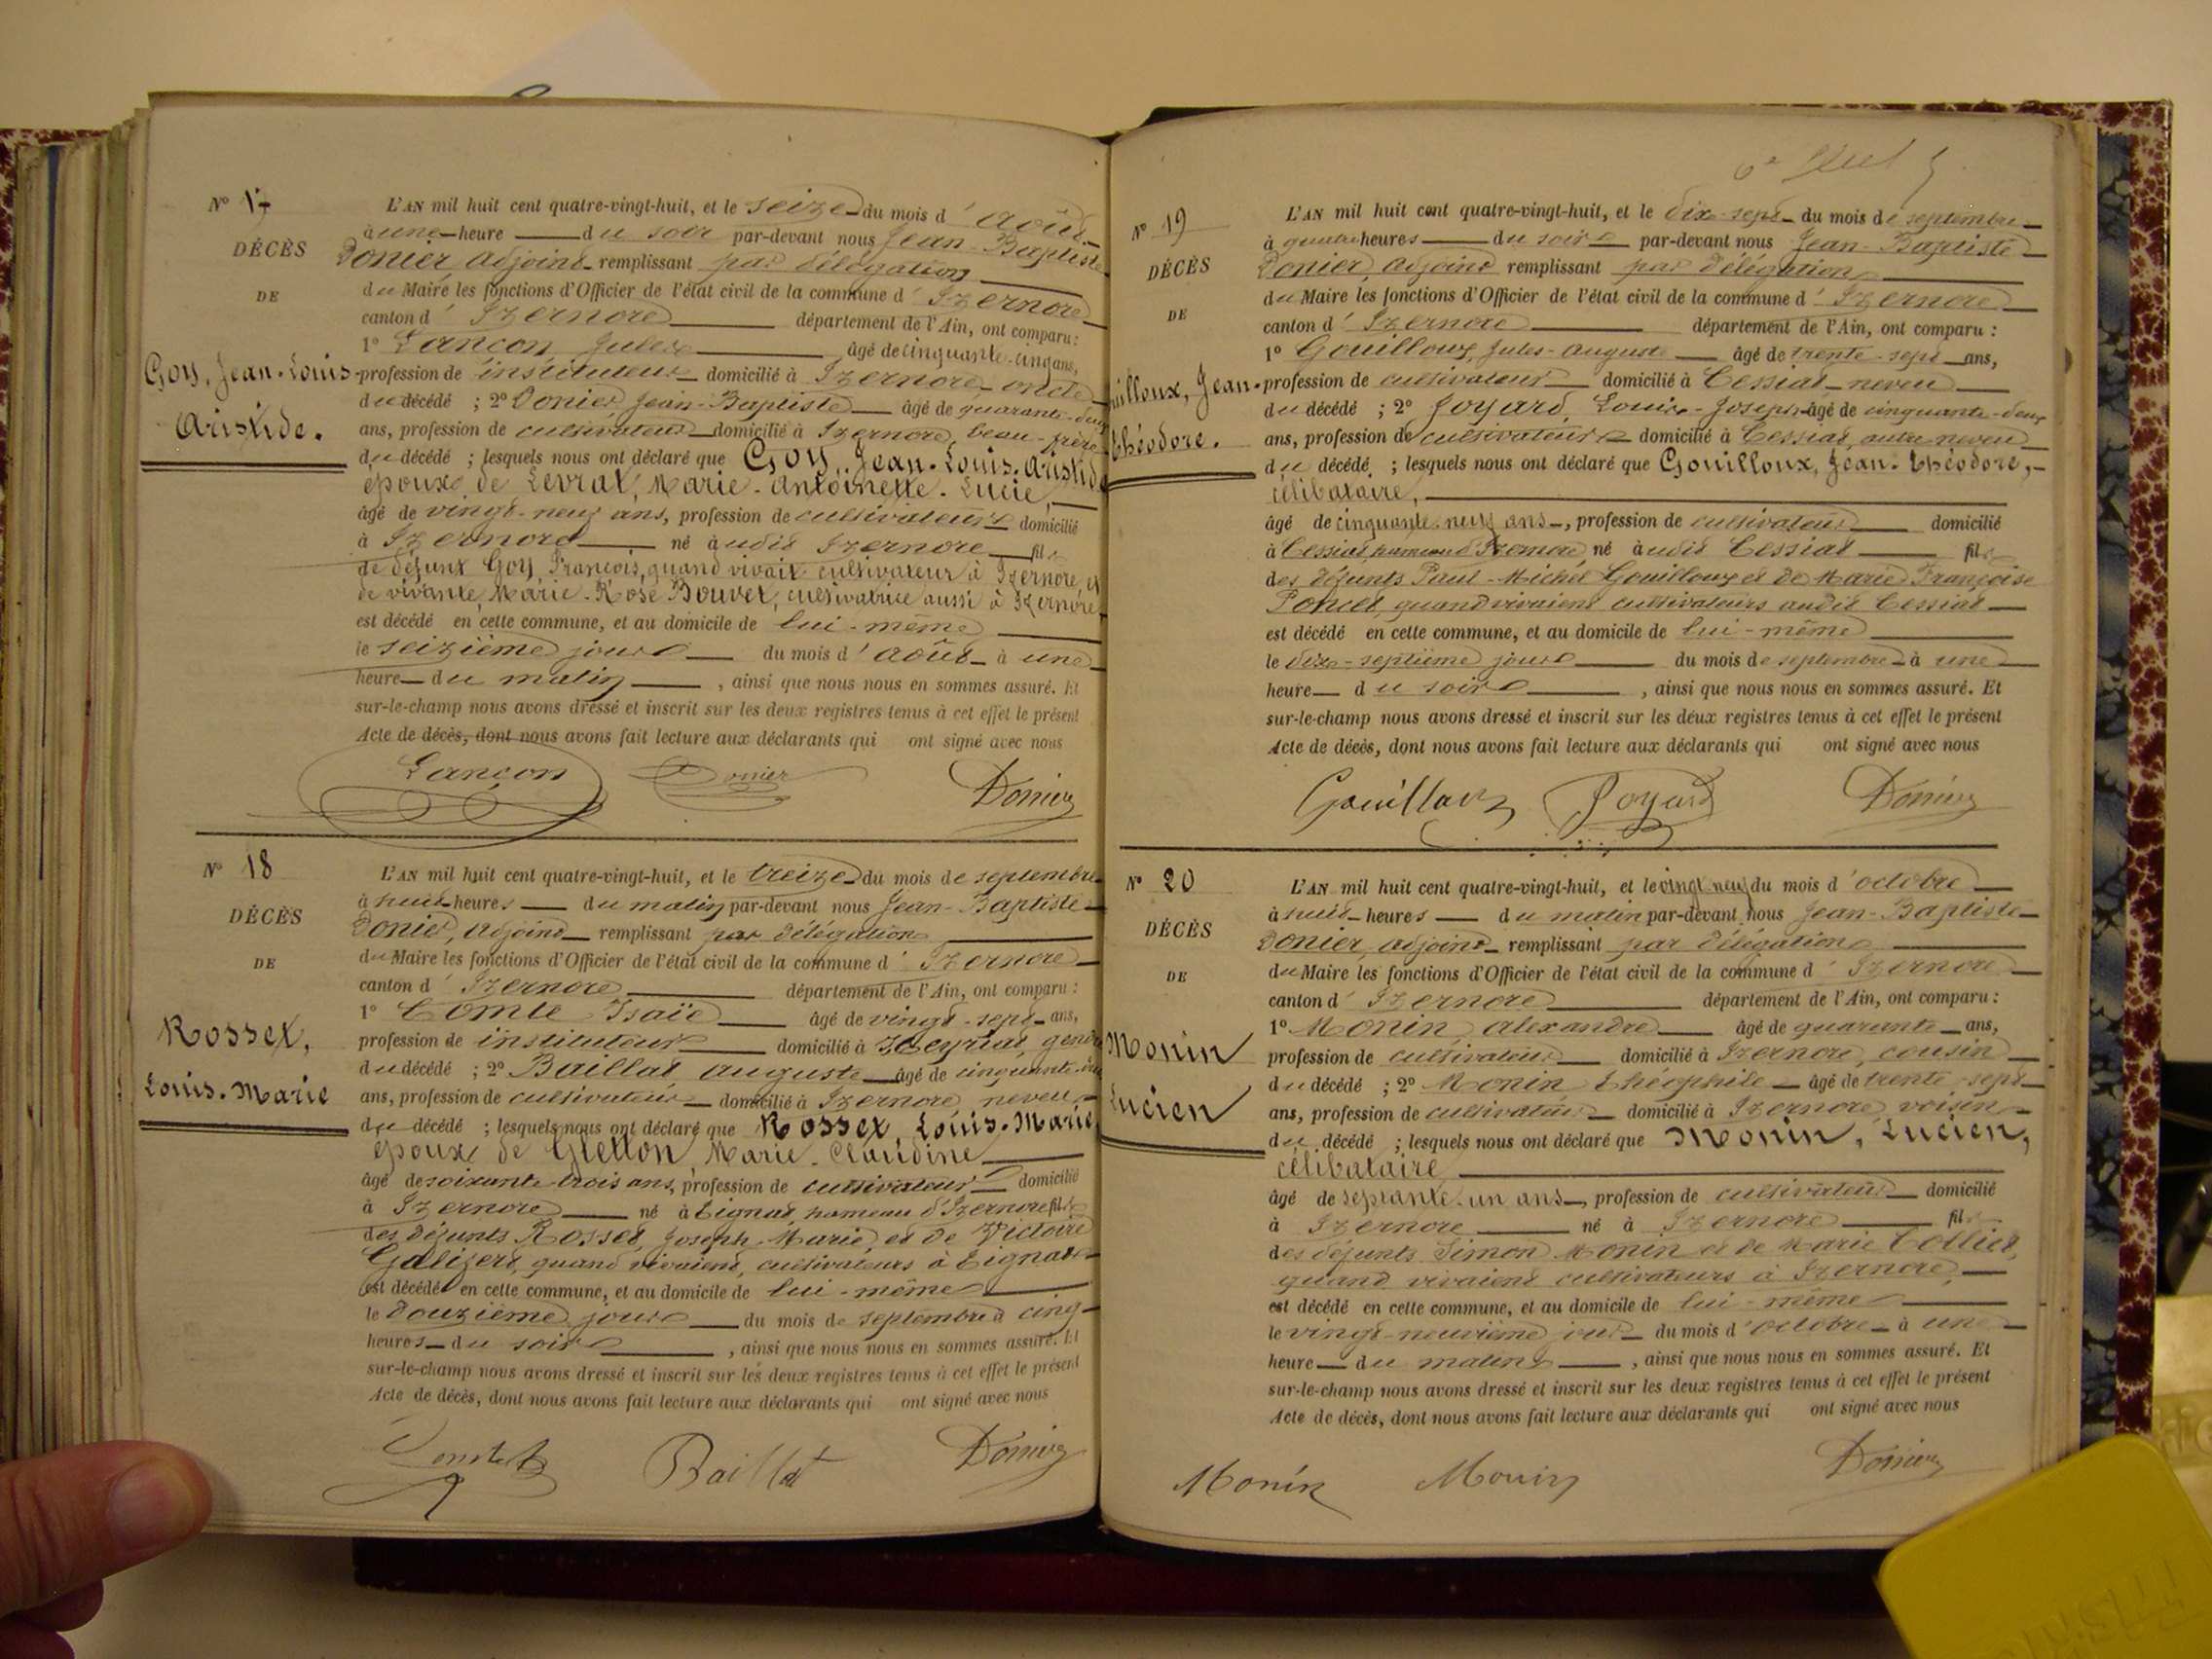 N° 17
DÉCÈS
DE
Goy, Jean-Louis-
Aristide.
L'AN mil huit cent quatre-vingt-huit, et le seize du mois d'août
à une heure du soir par-devant nous Jean-Baptiste
Donier, adjoint remplissant par délégation
du Maire les fonctions d'Officier de l'état civil de la commune d'Izernore
canton d'Izernore département de l'Ain, ont comparu :
1° Lançon, Jules âgé de cinquante-cinq ans,
profession de instituteur domicilié à Izernore, oncle
du décédé ; 2° Donier, Jean-Baptiste âgé de quarante-deux
ans, profession de cultivateur domicilié à Izernore, beau-frère
du décédé ; lesquels nous ont déclaré que Goy, Jean-Louis-Aristide
époux de Levrat, Marie-Antoinette-Lucie,
âgé de vingt-neuf ans, profession de cultivateur domicilié
à Izernore né à udit Izernore fils
de défunt Goy, François, quand vivait cultivateur à Izernore, et
de vivante, Marie-Rose Bouvet, cultivatrice aussi à Izernore
est décédé en cette commune, et au domicile de lui-même
le seizième jour du mois d'août à une
heure du matin, ainsi que nous nous en sommes assuré. Et
sur-le-champ nous avons dressé et inscrit sur les deux registres tenus à cet effet le présent
Acte de décès, dont nous avons fait lecture aux déclarants qui ont signé avec nous
Lançon Donier Donier
N° 18
DÉCÈS
DE
Rosset,
Louis-Marie
L'AN mil huit cent quatre-vingt-huit, et le treize du mois de septembre
à huit heures du matin par-devant nous Jean-Baptiste
Donier, adjoint remplissant par délégation
du Maire les fonctions d'Officier de l'état civil de la commune d'Izernore
canton d'Izernore département de l'Ain, ont comparu :
1° Comte Isaïe âgé de vingt-sept ans,
profession de instituteur domicilié à Heyriat, gendre
du décédé ; 2° Baillat Auguste âgé de cinquante
ans, profession de cultivateur domicilié à Izernore, neveu
du décédé ; lesquels nous ont déclaré que Rosset, Louis-Marie
époux de Gletton, Marie-Claudine
âgé de soixante-trois ans, profession de cultivateur domicilié
à Izernore né à Tignat, hameau d'Izernore fils
des défunts Rosset, Joseph-Marie, et de Victoire
quand vivaient, cultivateurs à Tignat
est décédé en cette commune, et au domicile de lui-même
le douzième jour du mois de septembre à cinq
heures du soir, ainsi que nous nous en sommes assuré. Et
sur-le-champ nous avons dressé et inscrit sur les deux registres tenus à cet effet le présent
Acte de décès, dont nous avons fait lecture aux déclarants qui ont signé avec nous
Baillat Donier
N° 19
DÉCÈS
DE
uilloux, Jean-
théodore.
L'AN mil huit cent quatre-vingt-huit, et le dix-sept du mois de septembre
à quatre heures du soir par-devant nous Jean-Baptiste
Donier, adjoint remplissant par délégation
du Maire les fonctions d'Officier de l'état civil de la commune d'Izernore
canton d'Izernore département de l'Ain, ont comparu :
1° Gouilloux, Jules-Auguste âgé de trente-sept ans,
profession de cultivateur domicilié à Cessiat, neveu
du décédé ; 2° Joyard, Louis-Joseph âgé de cinquante-deux
ans, profession de cultivateur domicilié à Cessiat, autre neveu
du décédé ; lesquels nous ont déclaré que Gouilloux, Jean-théodore,
célibataire,
âgé de cinquante-neuf ans, profession de cultivateur domicilié
à Cessiat, hameau d'Izernore né à udit Cessiat fils
des défunts Paul-Michel Gouilloux et de Marie Françoise
Poncet, quand vivaient cultivateurs audit Cessiat
est décédé en cette commune, et au domicile de lui-même
le dix-septième jour du mois de septembre à une
heure du soir, ainsi que nous nous en sommes assuré. Et
sur-le-champ nous avons dressé et inscrit sur les deux registres tenus à cet effet le présent
Acte de décès, dont nous avons fait lecture aux déclarants qui ont signé avec nous
Gouilloux Joyard Donier
N° 20
DÉCÈS
DE
Monin
Lucien
L'AN mil huit cent quatre-vingt-huit, et le vingt neuf du mois d'octobre
à huit heures du matin par-devant nous Jean-Baptiste
Donier, adjoint remplissant par délégation
du Maire les fonctions d'Officier de l'état civil de la commune d'Izernore
canton d'Izernore département de l'Ain, ont comparu :
1° Monin, Alexandre âgé de quarante ans,
profession de cultivateur domicilié à Izernore, cousin
du décédé ; 2° Monin théophile âgé de trente-sept
ans, profession de cultivateur domicilié à Izernore, voisin
du décédé ; lesquels nous ont déclaré que Monin, Lucien,
célibataire
âgé de septante-un ans, profession de cultivateur domicilié
à Izernore né à Izernore fils
des défunts Simon Monin et de Marie Collet,
quand vivaient cultivateurs à Izernore,
est décédé en cette commune, et au domicile de lui-même
le vingt-neuvième jour du mois d'octobre à une
heure du matin, ainsi que nous nous en sommes assuré. Et
sur-le-champ nous avons dressé et inscrit sur les deux registres tenus à cet effet le présent
Acte de décès, dont nous avons fait lecture aux déclarants qui ont signé avec nous
Monin Monin Donier